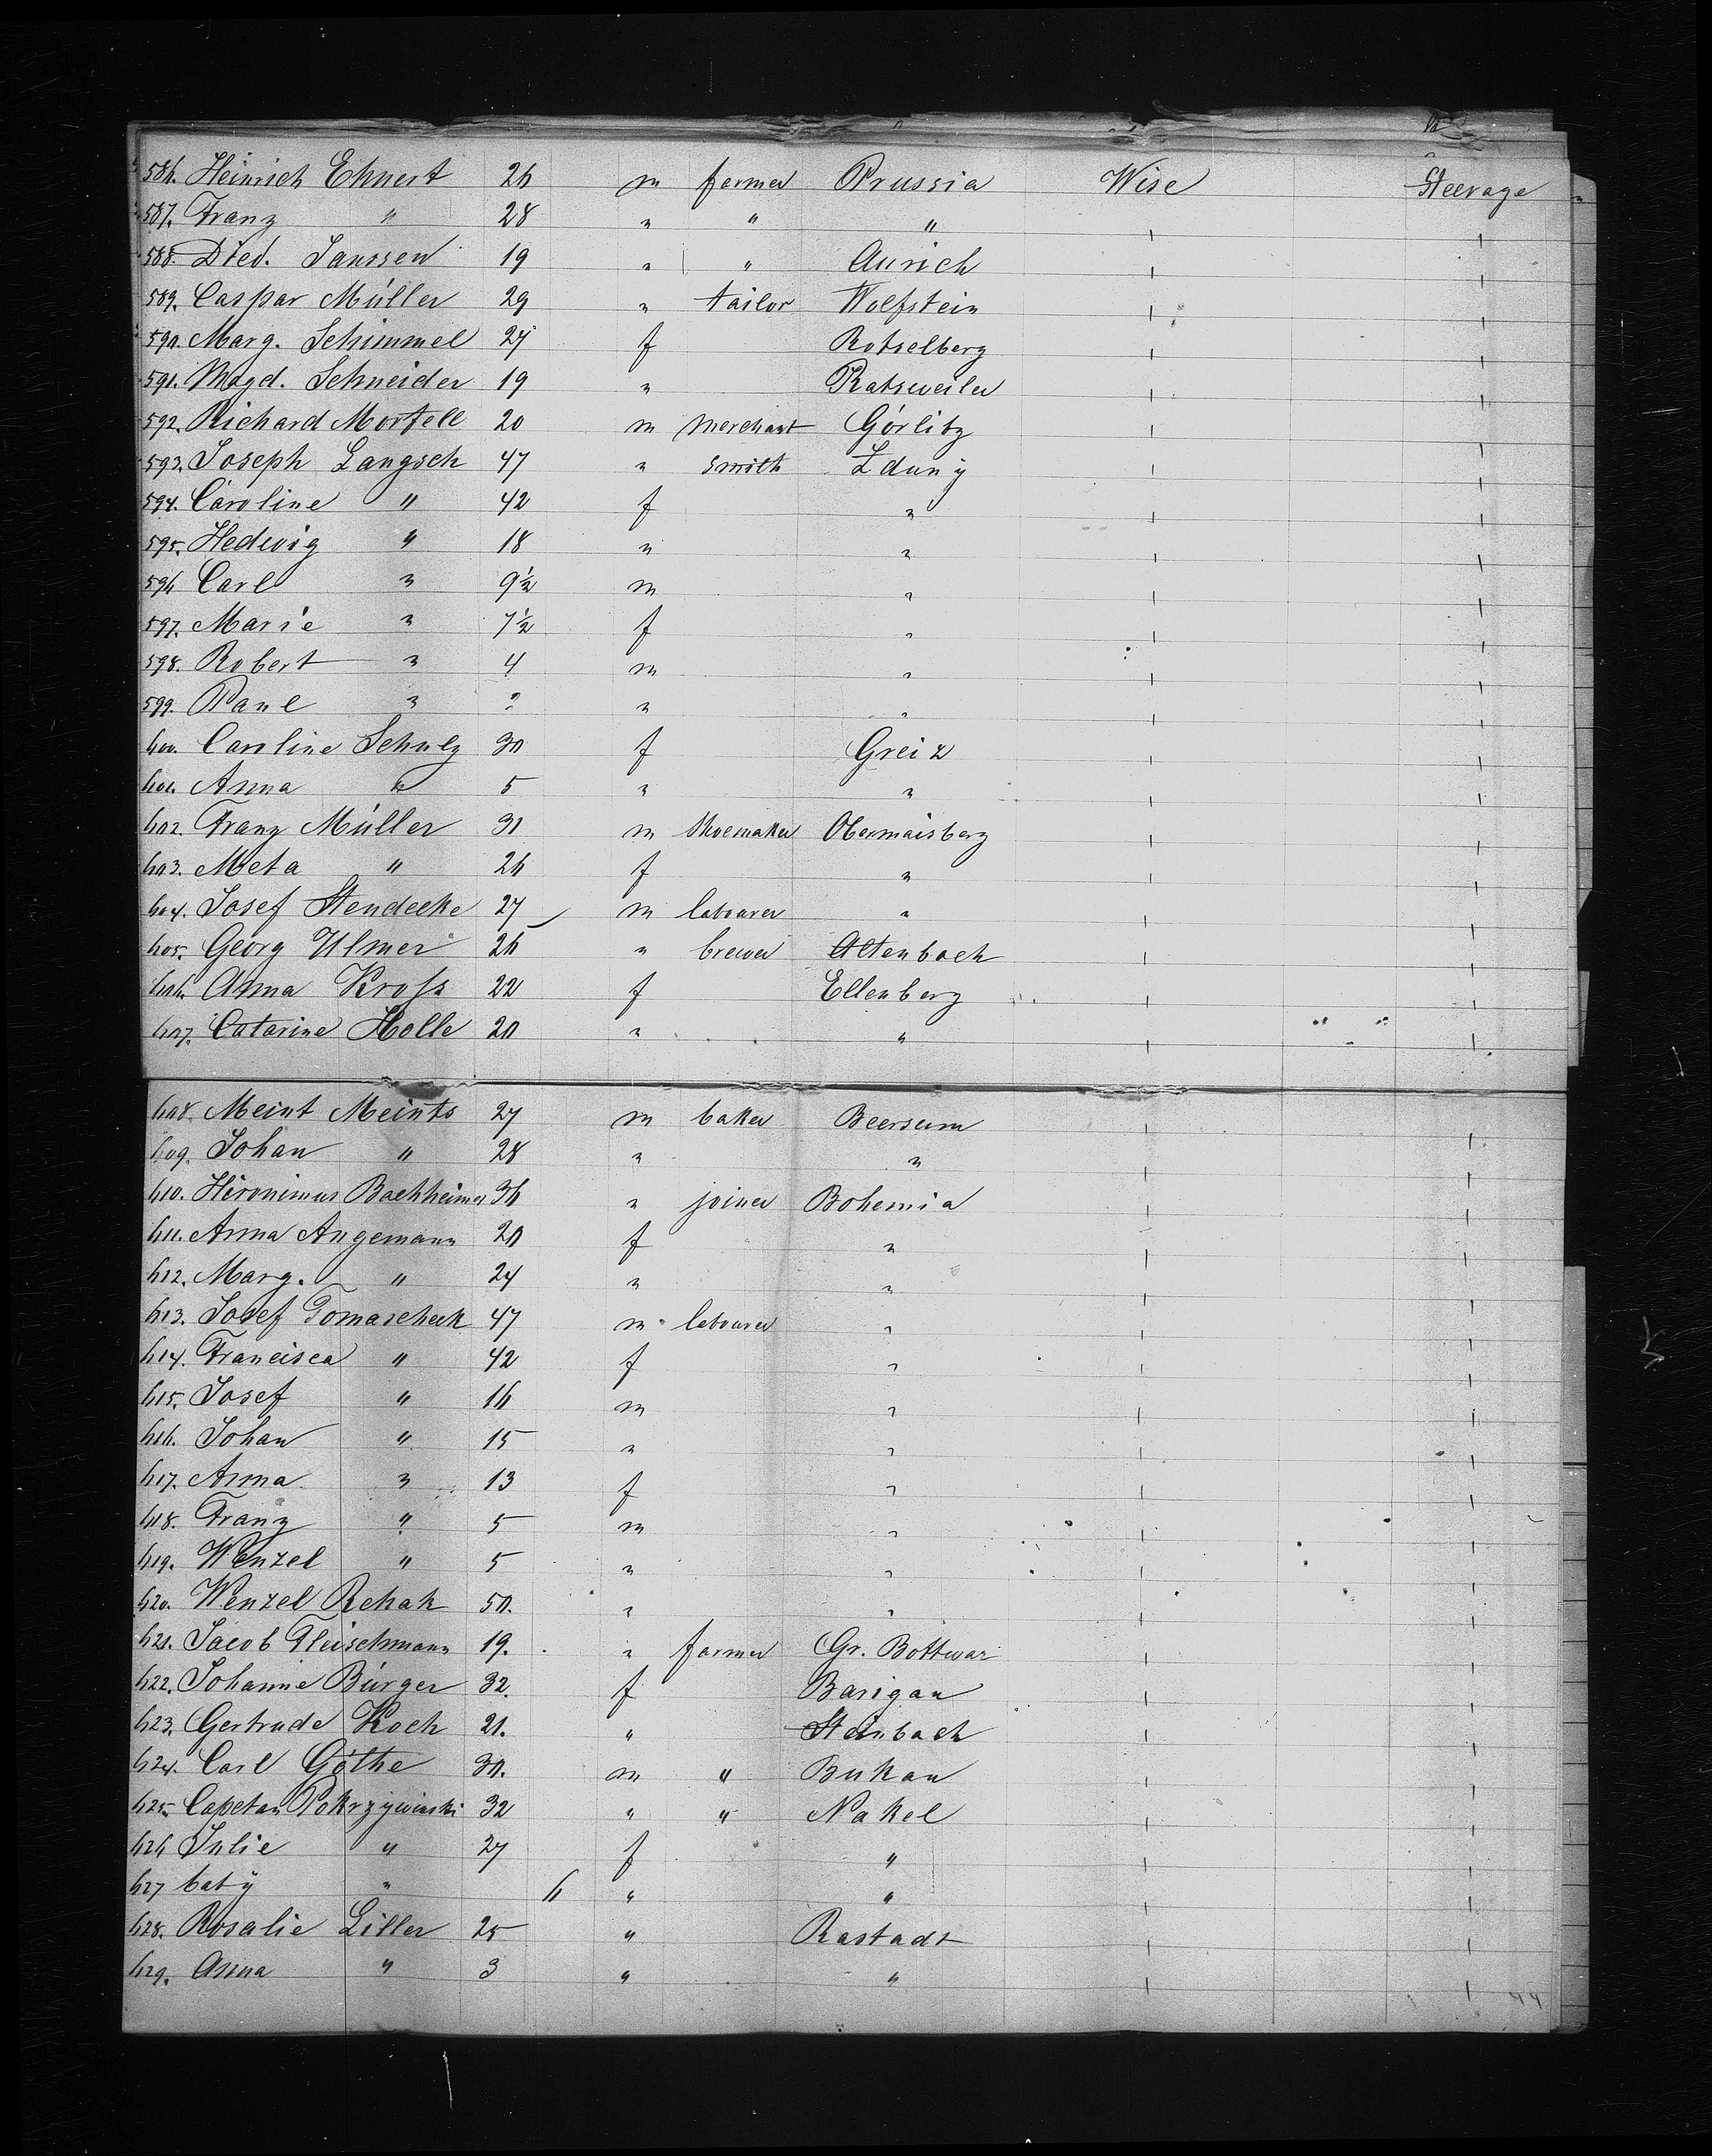 586. Heinrich Ehnert 26 m farmer Prussia Wise Steerage
587. Franz " 28 " " "
588. Died. Janssen 19 " " Aurich
589. Caspar Müller 29 " tailor Wolfstein
590. Marg. Schimmel 24 f Rotselberg
591. Magd. Schneider 19 " Ratsweiler
592. Richard Mortell 20 m merchant Görlitz
593. Joseph Langsch 47 " smith Zduny
594. Caroline " 42 f "
595. Hedwig " 18 " "
596 Carl " 9½ m "
597. Marie " 7½ f "
598. Robert " 4 m "
599. Paul " " "
600. Caroline Schulz 30 f Greiz
601. Anna " 5 " "
602. Franz Müller 31 m Shoemaker Obermaisberg
603. Meta " 26 f "
604. Josef Stendecke 27 m labourer "
605. Georg Ulmer 26 " brewer Altenbach
606. Anna Kross 22 f Ellenberg
607. Catarine Holle 20 " "
608. Meint Meints 27 m baker Beersum
609. Johan " 28 " "
610. Hironimus Bachheimer 36 " joiner Bohemia
611. Anna Angemann 20 f "
612. Marg. " 24 " "
613. Josef Tomascheck 47 m labourer "
614. Francisca " 42 f "
615. Josef " 16 m "
616. Johan " 15 " "
617. Anna " 13 f "
618. Franz " 5 m "
619. Wenzel " 5 " "
620. Wenzel Rehak 50. " "
621. Jacob Fleischmann 19. " farmer Gr. Bottwar
622. Johanne Bürger 32. f Barigau
623. Gertrude Koch 21. " Steinbach
624. Carl Göthe 30. m " Bukau
625. Capetan Pokrzywinski 32 " " Nakel
626 Julie " 27 f "
627 baby " 6 " "
628. Rosalie Liller 25 " Rastadt
629. Anna " 3 " "
44